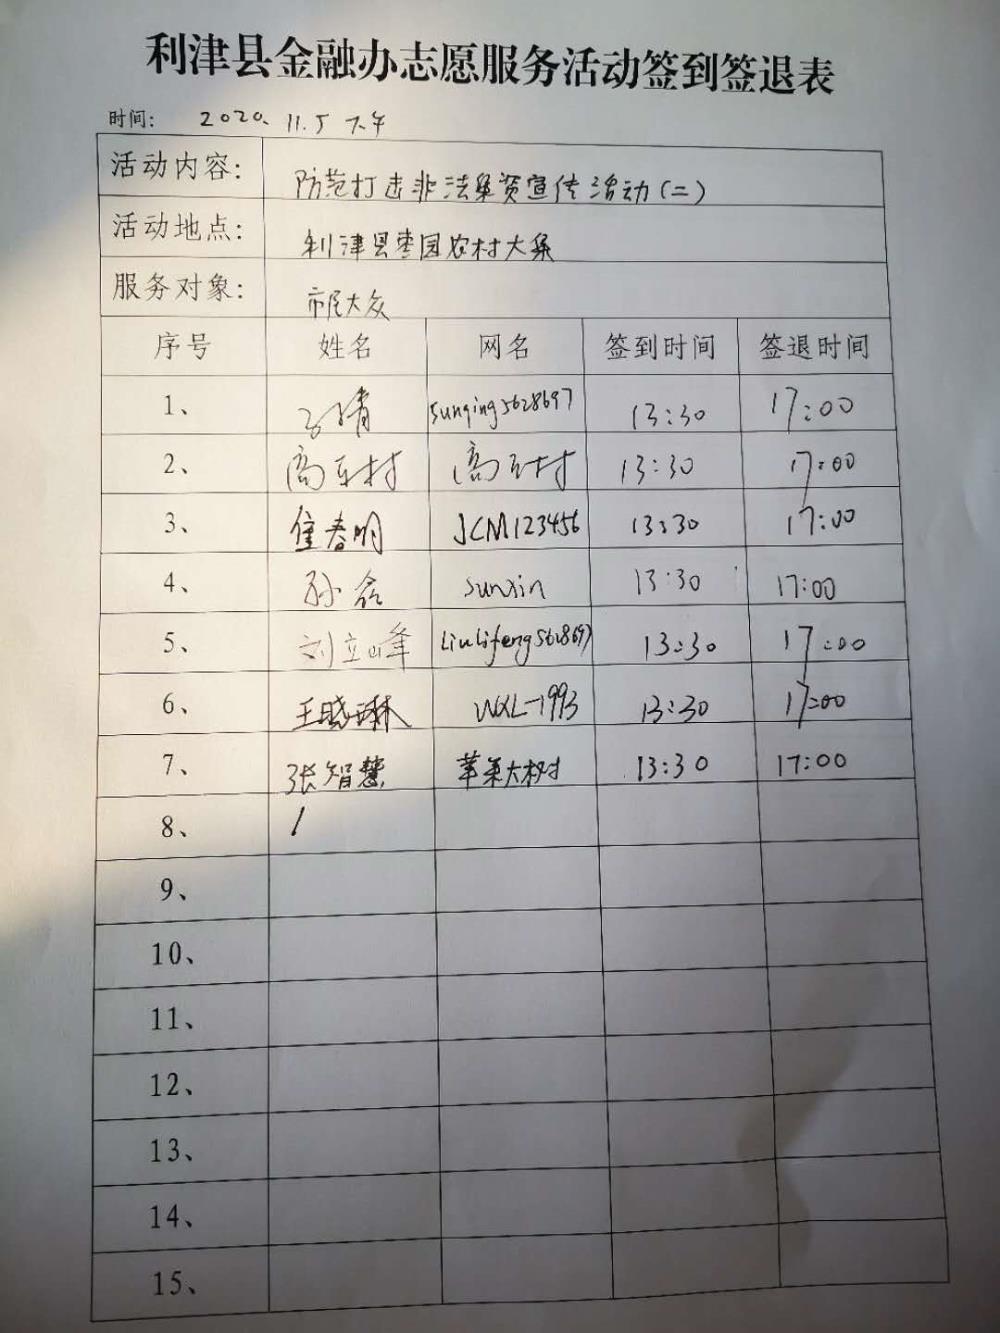 利津县金融办志愿服务活动签到签退表
时间: 2020. 11.5 下午
活动内容: 防范打击非法集资宣传活动(二)
活动地点: 利津县枣园农村大集
服务对象: 市民大众
序号 姓名 网名 签到时间 签退时间
1、 孙倩 sunqing5628697 13:30 17:00
2、 高于村 高于村 13:30 17:00
3、 崔春明 JCM123456 13:30 17:00
4、 孙鑫 sunxin 13:30 17:00
5、 刘立峰 Liulifeng5628697 13:30 17:00
6、 王晓琳 WXL-1993 13:30 17:00
7、 张智慧 苹果大树 13:30 17:00
8、
9、
10、
11、
12、
13、
14、
15、